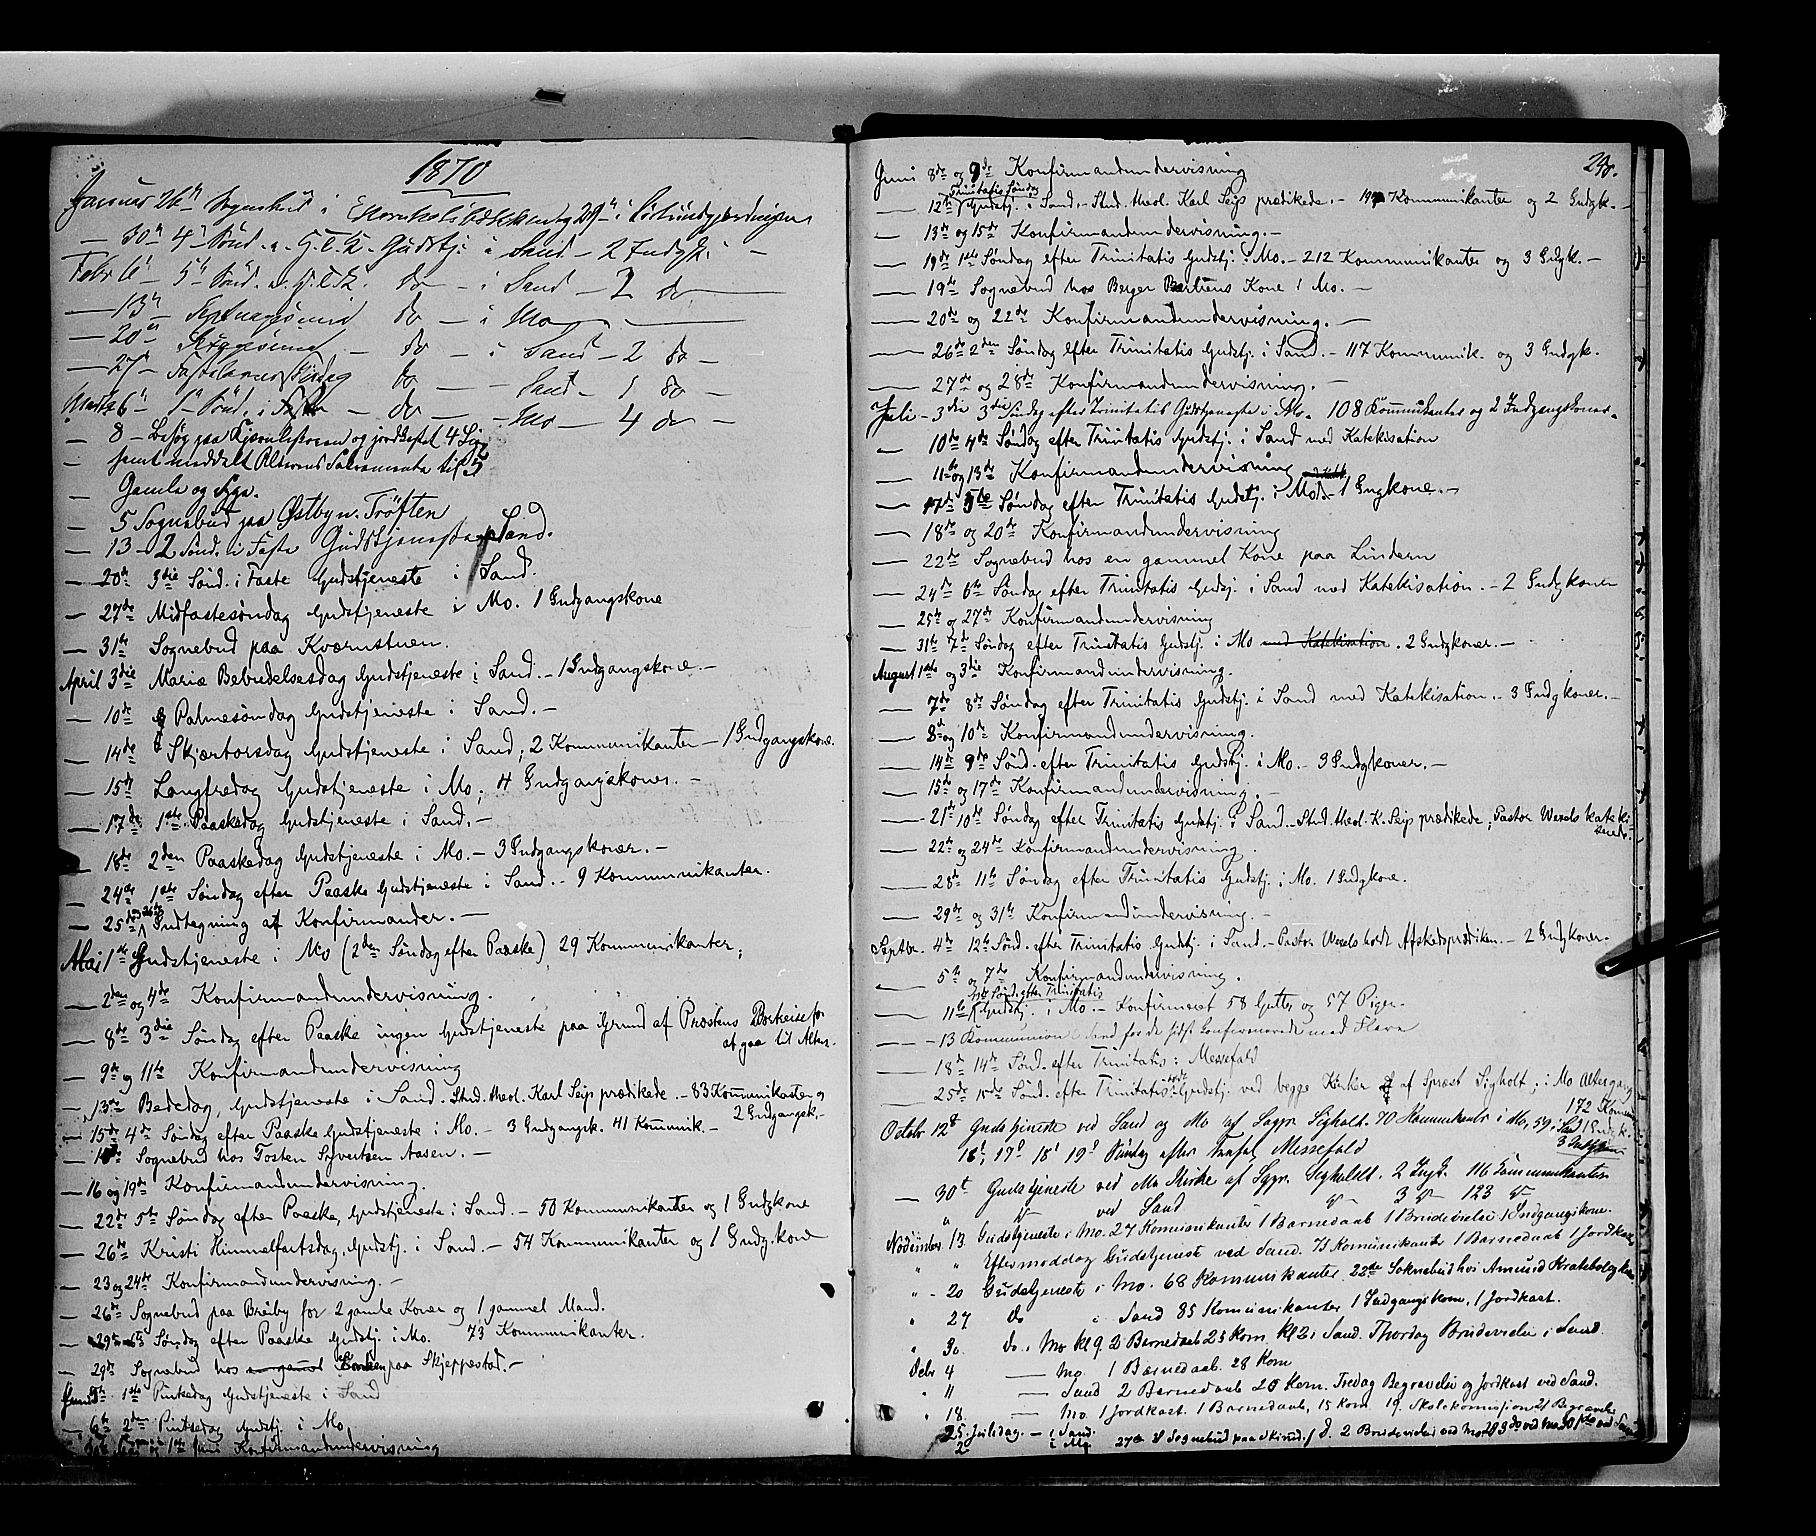 1870
Januar 26de Sognebud i
— 30te 4de Sønd. e. H. 3. K. Gudstj. i Sand — 2 Indgk. —
Febr 6te 5te Sønd. e. H. 3 K. do — i Sand — 2 do
— 13de Septuagesima do — i Mo
— 20de Sexagesima — do — i Sand — 2 do —
— 27de Fastelavnssøndag do — — Sand — 1 do —
Marts 6te 1ste Sønd. i Faste — do — — Mo — 4 do —
— 8 — Besøg paa og jordfæstet 4 Lig
— samt meddelt Alterens Sakramente til 5
— Gamle og Syge.
— 5 Sognebud paa Østbyn. Trøften
— 13 — 2 Sønd. i Faste Gudstjeneste Sand.
— 20de 3die Sønd. i Faste Gudstjeneste i Sand.
— 27de Midfastesøndag Gudstjeneste i Mo. 1 Indgangskone
— 31te Sognebud paa Kværnstuen.
April 3die Mariæ Bebudelsesdag Gudstjeneste i Sand. — 1 Indgangskone. —
— 10de Palmesøndag Gudstjeneste i Sand. —
— 14de Skjærtorsdag Gudstjeneste i Sand; 2 Kommunikanter — 1 Indgangskone.
— 15de Langfredag Gudstjeneste i Mo; 4 Indgangskoner. —
— 17de 1ste Paaskedag Gudstjeneste i Sand. —
— 18de 2den Paaskedag Gudstjeneste i Mo. — 3 Indgangskoner. —
— 24de 1ste Søndag efter Paaske Gudstjeneste i Sand. — 9 Kommunikanter.
— 25de og 26de Indtegning af Konfirmander. —
Mai 1ste Gudstjeneste i Mo (2den Søndag efter Paaske) 29 Kommunikanter;
— 2den og 4de Konfirmandundervisning.
— 8de 3die Søndag efter Paaske ingen Gudstjeneste paa Grund af Prostens Bortreise for
at gaa til Alters.
— 9de og 11te Konfirmandundervisning
— 13de Bededag, Gudstjeneste i Sand. Stud. theol. Karl Seip prædikede. — 83 Kommunikanter og
2 Indgangsk. —
— 15de 4de Søndag efter Paaske Gudstjeneste i Mo. — 3 Indgangsk. 41 Kommunik. —
— Sognebud hos Tosten Syvertsen Aasen. —
— 16 og 19de Konfirmandundervisning.
— 22de 5te Søndag efter Paaske, Gudstjeneste i Sand. — 50 Kommunikanter og 1 Indgkone
— 26de Kristi Himmelfartsdag, Gudstj. i Sand. — 54 Kommunikanter og 1 Indg.kone
— 23 og 24de Konfirmandundervisning. —
— 26de Sognebud paa Breiby for 2 gamle Koner og 1 gammel Mand.
— 29de 6te Søndag efter Paaske Gudstj. i Mo. 73 Kommunikanter.
— 29de Sognebud hos paa Skjeppestad. —
Juni 5te 1ste Pintsedag Gudstjeneste i Sand
— 6te 2den Pintsedag Gudstj. i Mo.
Juni Konfirmandundervisning
28.
Juni 8de og 9de Konfirmandundervisning
— 12te Trinitatis Søndag Gudstj. i Sand. — Stud. theol. Karl Seip prædikede. — Kommunikanter og 2 Indgk. —
— 13de og 15de Konfirmandundervisning. —
— 19de 1ste Søndag efter Trinitatis Gudstj. i Mo. — 212 Kommunikanter og 3 Indgk. —
— 19te Sognebud hos Berger Kone i Mo. —
— 20de og 22de Konfirmandundervisning. —
— 26de 2den Søndag efter Trinitatis Gudstj. i Sand. — 117 Kommunik. og 3 Indgk.
— 27de og 28de Konfirmandundervisning. —
Juli — 3die 3die Søndag efter Trinitatis Gudstjeneste i Mo. 108 Kommunikanter og 2 Indgangskoner.
— 10de 4de Søndag efter Trinitatis Gudstj. i Sand med Katekisation
— 11te og 13de Konfirmandundervisning
— 17de 5te Søndag efter Trinitatis Gudstj. i Mo. — 1 Indgkone. —
— 18de og 20de Konfirmandundervisning
— 22de Sognebud hos en gammel Kone paa Lindern
— 24de 6te Søndag efter Trinitatis Gudstj. i Sand med Katekisation. — 2 Indgkoner
— 25te og 27de Konfirmandundervisning
— 31te 7de Søndag efter Trinitatis Gudstj. i Mo med Katekisation. 2 Indgkoner. —
August 1ste og 3die Konfirmandundervisning.
— 7de 8de Søndag efter Trinitatis Gudstj. i Sand med Katekisation. — 3 Indgkoner. —
— 8de og 10de Konfirmandundervisning.
— 14de 9de Sønd. efter Trinitatis Gudstj. i Mo. — 3 Indgkoner. —
— 15de og 17de Konfirmandundervisning. —
— 21de 10de Søndag efter Trinitatis Gudstj. i Sand. — Stud. theol. K. Seip prædikede; Pastor Wexels kateki-
serede.
— 22de og 24de Konfirmandundervisning.
— 28de 11te Søndag efter Trinitatis Gudstj. i Mo. 1 Indgkone.
— 29de og 31te Konfirmandundervisning. —
Septbr. 4de 12te Sønd. efter Trinitatis Gudstj. i Sand. — Pastor Wexels holdt Afskedsprædiken. — 2 Indgkoner. —
— 5te og 7de Konfirmandundervisning.
— 11te 13de Sønd. efter Trinitatis Gudstj. i Mo. — Konfirmeret 58 Gutter og 57 Piger. —
— 13 Kommunion for de sidst Konfirmerede med Flere
— 18de 14de Sønd. efter Trinitatis: Messefald
— 25de 15de Sønd. efter Trinitatis Gudstj. ved begge Kirker af Sprest Sigholt; i Mo Altergang
172 Kommu
Octobr 12te Gudstjeneste ved Sand og Mo af Sogpr. Sigholt. 70 Kommunikanter i Mo, 59 i Sand 1 Indgk.
3 Indgkoner
16de, 17de 18de 19de Søndag efter Messefald
— 30te Gudstjeneste ved Mo Kirke af Sgpr. Sigholdt. 2 Ingk. 116 Kommunikanter
" do ved Sand do 3 do 123 do
November 13 Gudstjeneste i Mo. 27 Komunikanter 1 Barnedaab 1 Brudevielse 1 Indgangskone.
" " Eftermiddag Gudstjeneste ved Sand. 73 Komunikanter 1 Barnedaab 1 Jordkast
" - 20 Gudstjeneste i Mo. 68 Komunikanter. 22de Soknebud hos Amund
" 27 do i Sand 85 Komunikanter 1 Indgangskone, 1 Jordkast.
" 30. do. i Mo Kl 9. 2 Barnedaab 25 Kom. Kl 2 i Sand. Thorsdag Brudevielse i Sand.
Debr 4 — Mo 1 Barnedaab. 28 Kom
" 11 — Sand 2 Barnedaab 20 Kom. Tredag Begravelse og Jordkast ved Sand.
" 18. — Mo. 1 Jordkast. 1 Barnedaab, 15 Kom 19. Skolekomisjon 21 Begravelse
25. Juledag. — i Sand.
2 — i Mo 27de Sognebud paa 2 Brudevielser ved Mo ved Sand